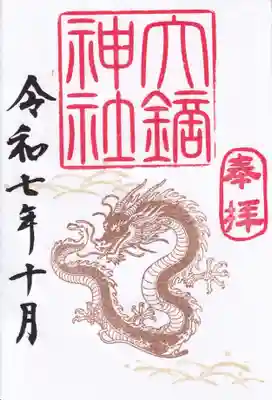 奉拝
大鏑
神社
令和七年十月